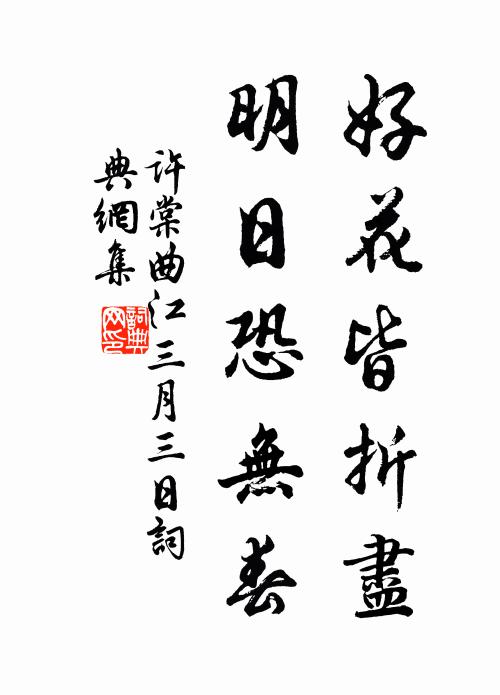 好花皆折盡
明日恐無春
許棠曲江三月三日詞
典網集
詞典
网印